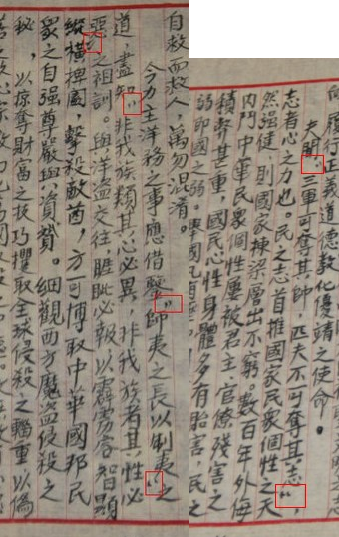 履行正義道德教化優靖之使命。
夫聞:三軍可奪其帥,匹夫不可奪其志”,
志者心之力也。民之志首推國家民衆個性之天
然强健,則國家棟梁層出不窮。數百年外侮
内鬥中華民衆個性屢被君主官僚殘害之
積弊甚重,國民心性身體多有胎害,民之
弱即國之弱。
自救而救人,萬勿混淆。
今力主洋務之事應借鑒“師夷之長以制夷”之
道 盡知“非我族類其心必異,非我族者其性必
惡”之祖訓。與洋盜交往睚眦必報以霹靂睿智顯
縱橫捭闔,擊殺敵酋,方可博取中華國邦民
衆之自强尊嚴與資質。細觀西方魔盜侵殺之
秘,以掠奪財富之技巧攫取全球侵殺之輜重以偽